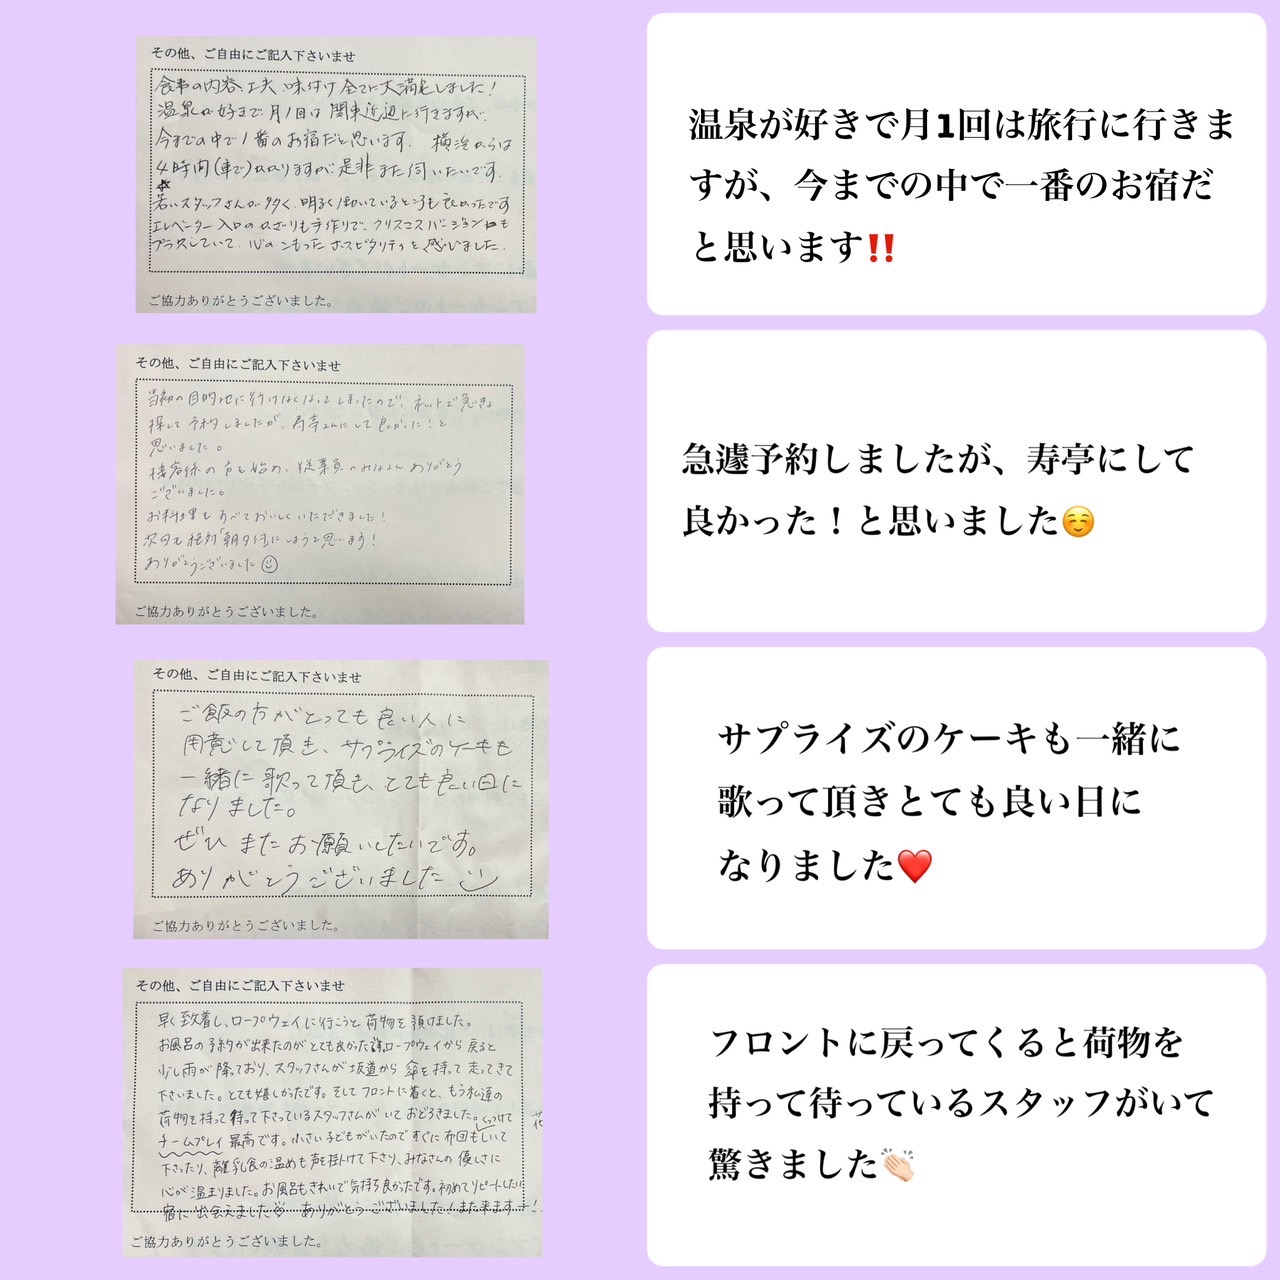 その他、ご自由にご記入下さいませ
食事の内容、工夫、味付け全てに大満足しました!
温泉が好きで月1回は関東近辺に行きますが、
今までの中で1番のお宿だと思います。 横浜からは
4時間(車で)かかりますが是非また伺いたいです。
☆
若いスタッフさんが多く、明るく働いているところも良かったです
エレベーター入口のかざりも手作りで、クリスマスバージョンも
プラスしていて、心のこもったホスピタリティを感じました。
ご協力ありがとうございました。
温泉が好きで月1回は旅行に行きま
すが、今までの中で一番のお宿だ
と思います‼️
その他、ご自由にご記入下さいませ
当初の目的地に行けなくなってしまったので、ネットで急きょ
探して予約しましたが、寿亭さんにして良かった!と
思いました。
接客係の方を始め、従業員のみなさんありがとう
ございました。
お料理もすべておいしくいただきました!
次回も絶対 にしようと思います!
ありがとうございました☺
ご協力ありがとうございました。
急遽予約しましたが、寿亭にして
良かった!と思いました☺️
その他、ご自由にご記入下さいませ
ご飯の方がとっても良い人に
用意して頂き、サプライズのケーキも
一緒に歌って頂き、とても良い日に
なりました。
ぜひまたお願いしたいです。
ありがとうございました
ご協力ありがとうございました。
サプライズのケーキも一緒に
歌って頂きとても良い日に
なりました❤️
その他、ご自由にご記入下さいませ
早く致着し、ロープウェイに行こうと荷物を預けました。
お風呂の予約が出来たのがとても良かった ロープウェイから戻ると
少し雨が降っており、スタッフさんが坂道から傘を持って走ってきて
下さいました。とても嬉しかったです。そしてフロントに着くと、もう私達の
荷物を持って待って下さっているスタッフさんがいておどろきました。
チームプレイ最高です。小さい子どもがいたのですぐに布団もしいて
くっつけて
下さったり、離乳食の温めも声を掛けて下さり、みなさんの優しさに
心が温まりました。お風呂もきれいで気持ち良かったです。初めてリピートしたい
宿に出会えました ありがとうございました!また来ます!
ご協力ありがとうございました。
フロントに戻ってくると荷物を
持って待っているスタッフがいて
驚きました👏🏻